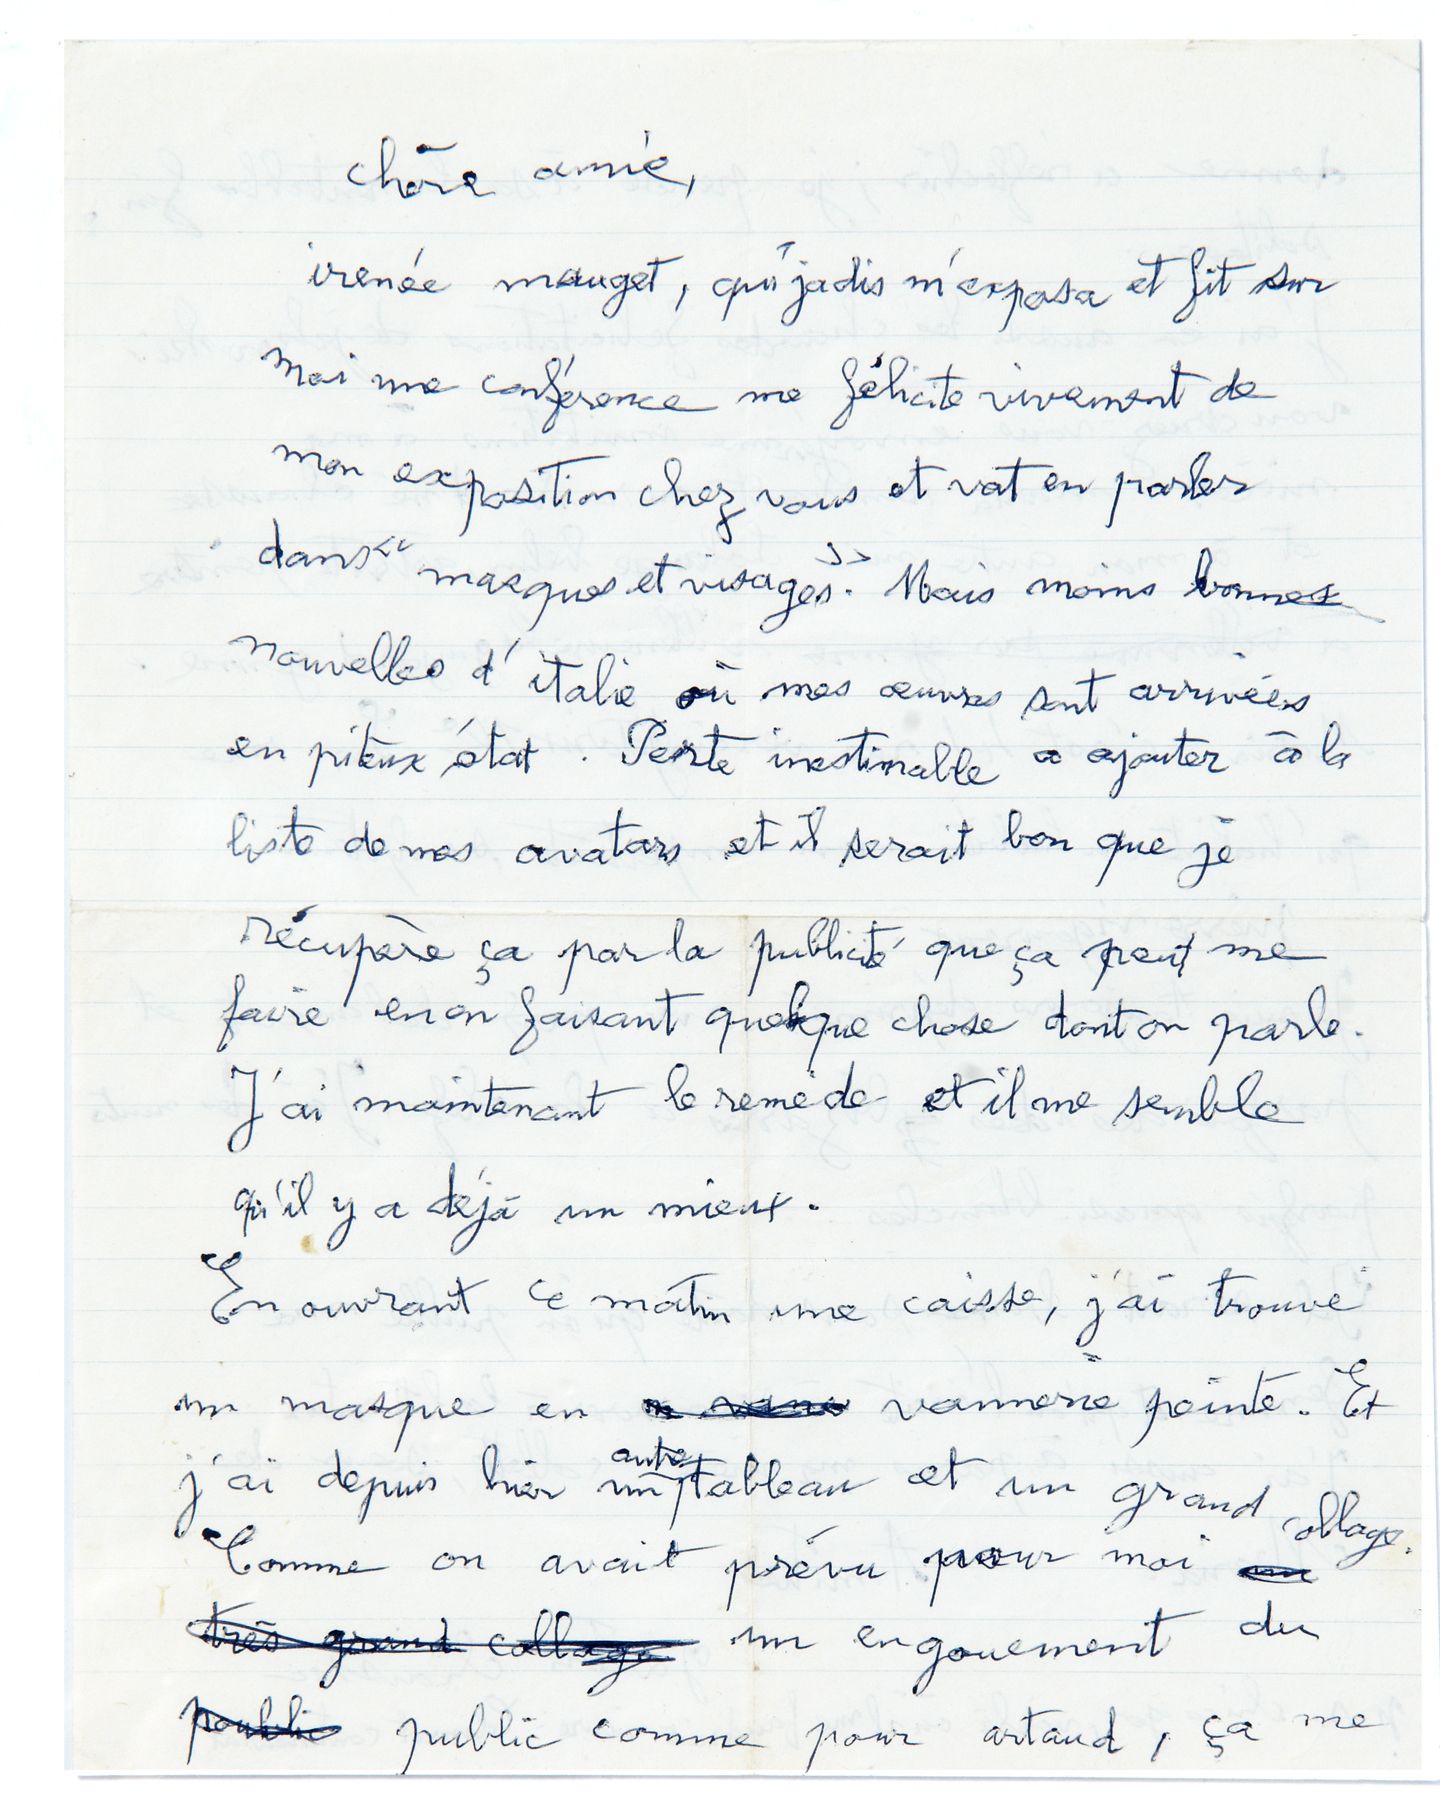 chère amie,
irenée mauget, qui jadis m'exposa et fit sur
moi une conférence me félicite vivement de
mon exposition chez vous et vat en parler
dans "masques et visages". Mais moins bonnes
nouvelles d'italie où mes œuvres sont arrivées
en piteux état. Perte inestimable a ajouter à la
liste de mes avatars et il serait bon que je
récupère ça par la publicité que ça peut me
faire en en faisant quelque chose dont on parle.
J'ai maintenant le remède et il me semble
qu'il y a déjà un mieux.
En ouvrant ce matin une caisse, j'ai trouvé
un masque en vannerie peinte. Et
j'ai depuis hier un autre tableau et un grand collage.
Comme on avait prévu pour moi un
très grand collage un engouement du
public public comme pour artaud, ça me